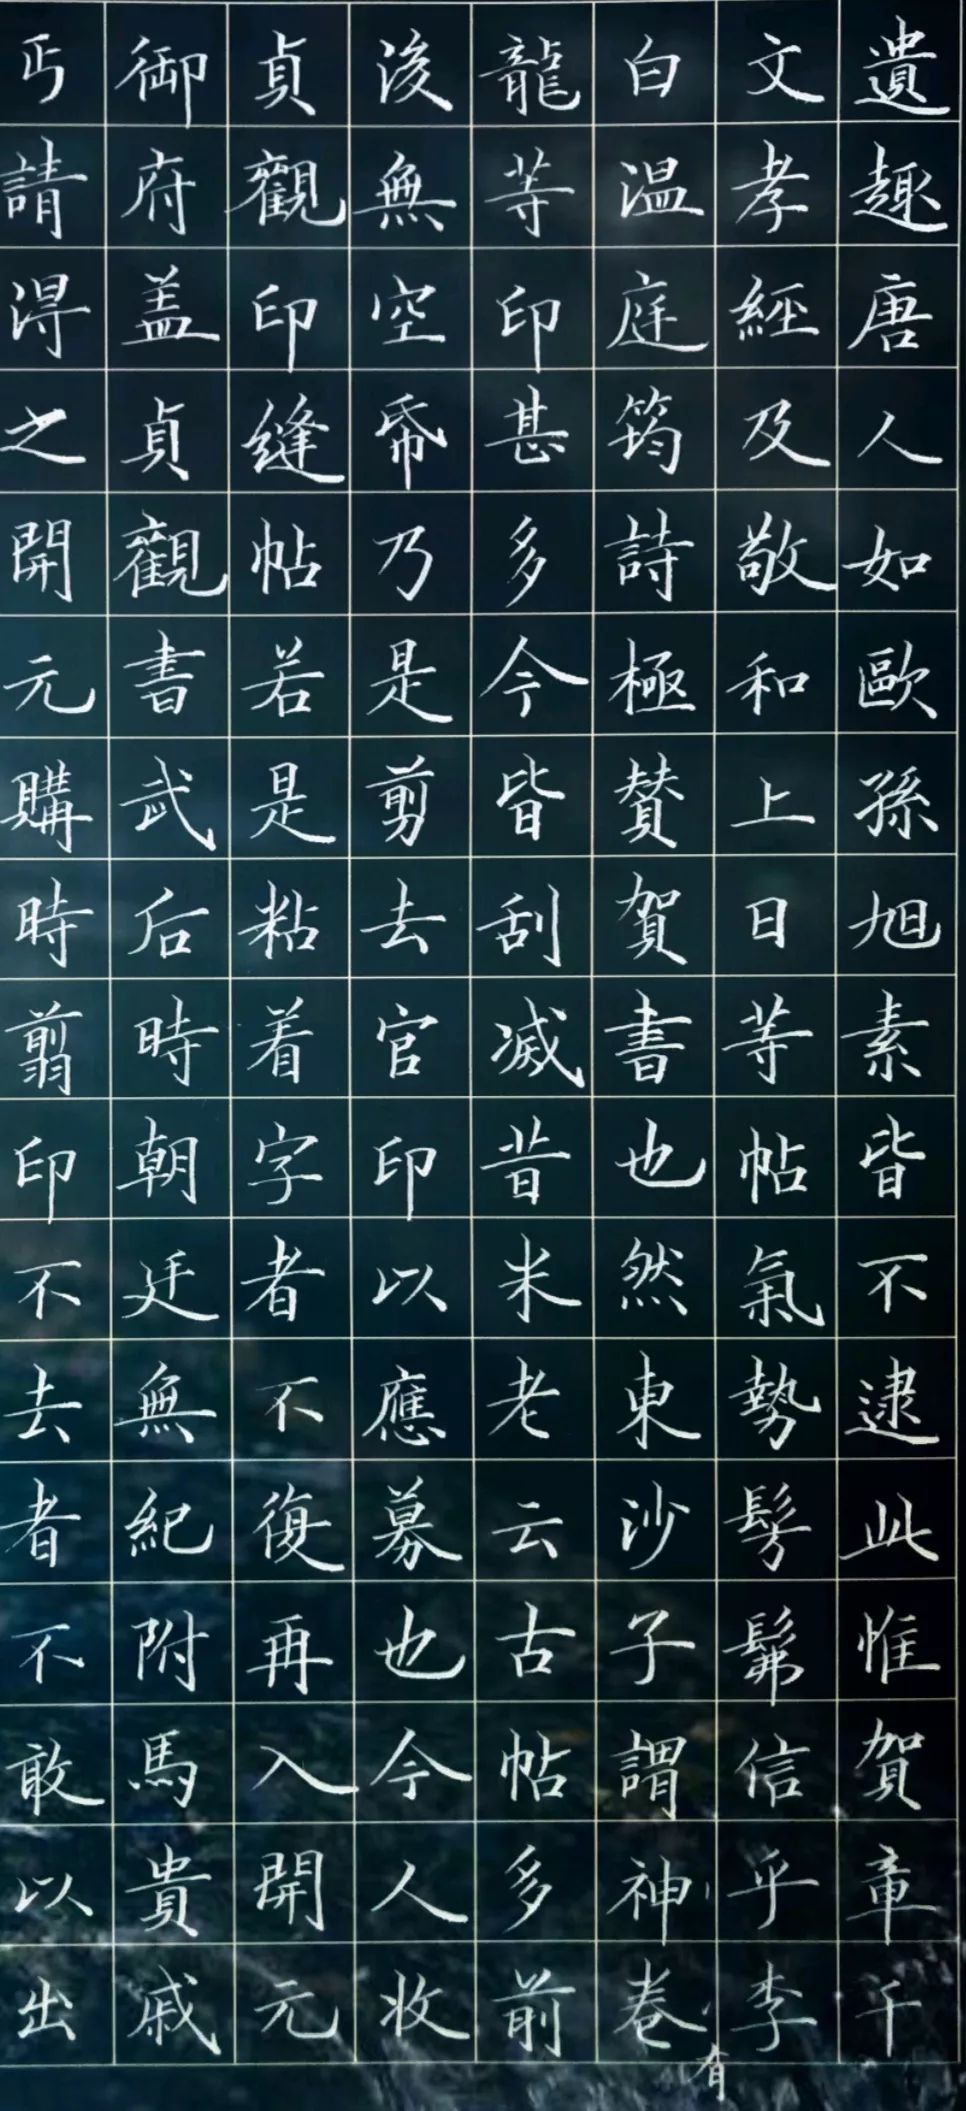 遺趣唐人如歐孫旭素皆不逮此惟賀章千
文孝經及敬和上日等帖氣勢髣髴信乎李
白温庭筠詩極賛賀書也然東沙子謂神卷
有
龍等印甚多今皆刮滅昔米老云古帖多前
後無空帋乃是剪去官印以應募也今人收
貞觀印縫帖若是粘着字者不復再入開元
御府盖貞觀書武后時朝廷無紀附馬貴戚
丐請得之開元購時翦印不去者不敢以出